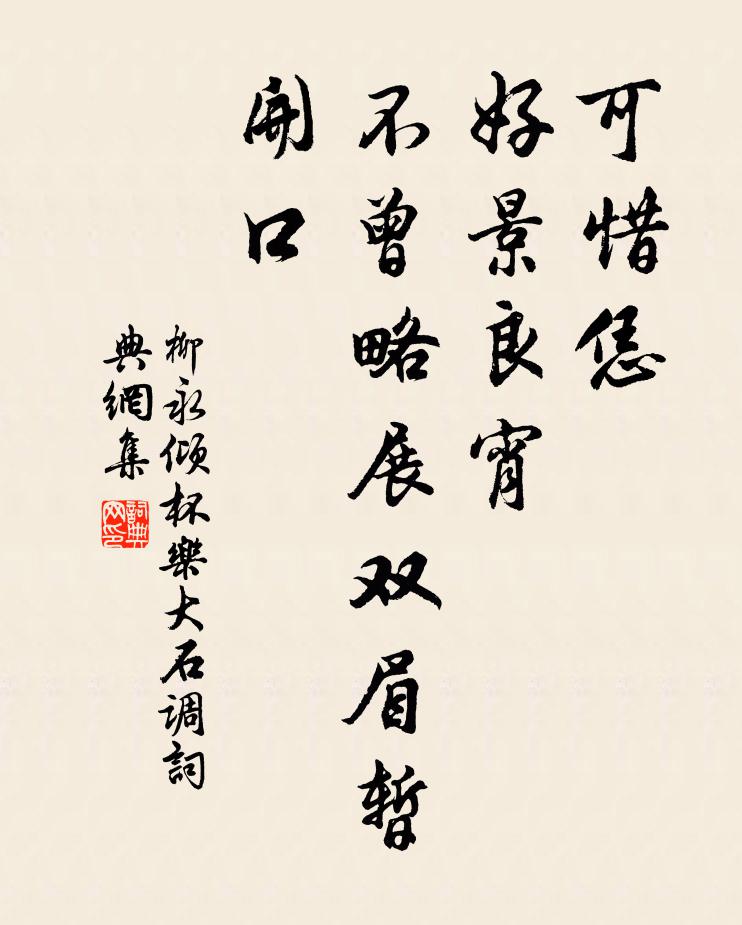 可惜恁
好景良宵
不曾略展双眉暂
開口
柳永倾杯樂大石调詞
典網集
詞典
网印